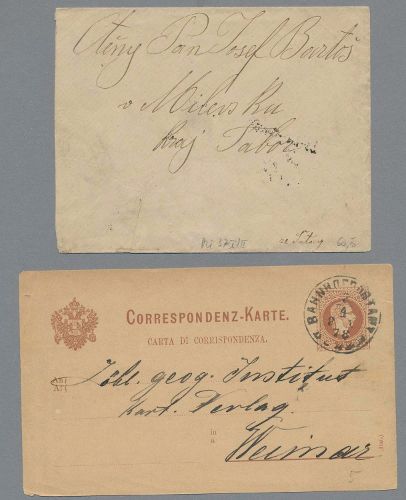 Ctěný Pan Josef Bartoš
v Milevsku
kraj Tábor
CORRESPONDENZ-KARTE.
CARTA DI CORRISPONDENZA.
BAHNHOF
4
78
An
A
Löbl. geog. Institut
Kart. Verlag
in
a
Weimar
5